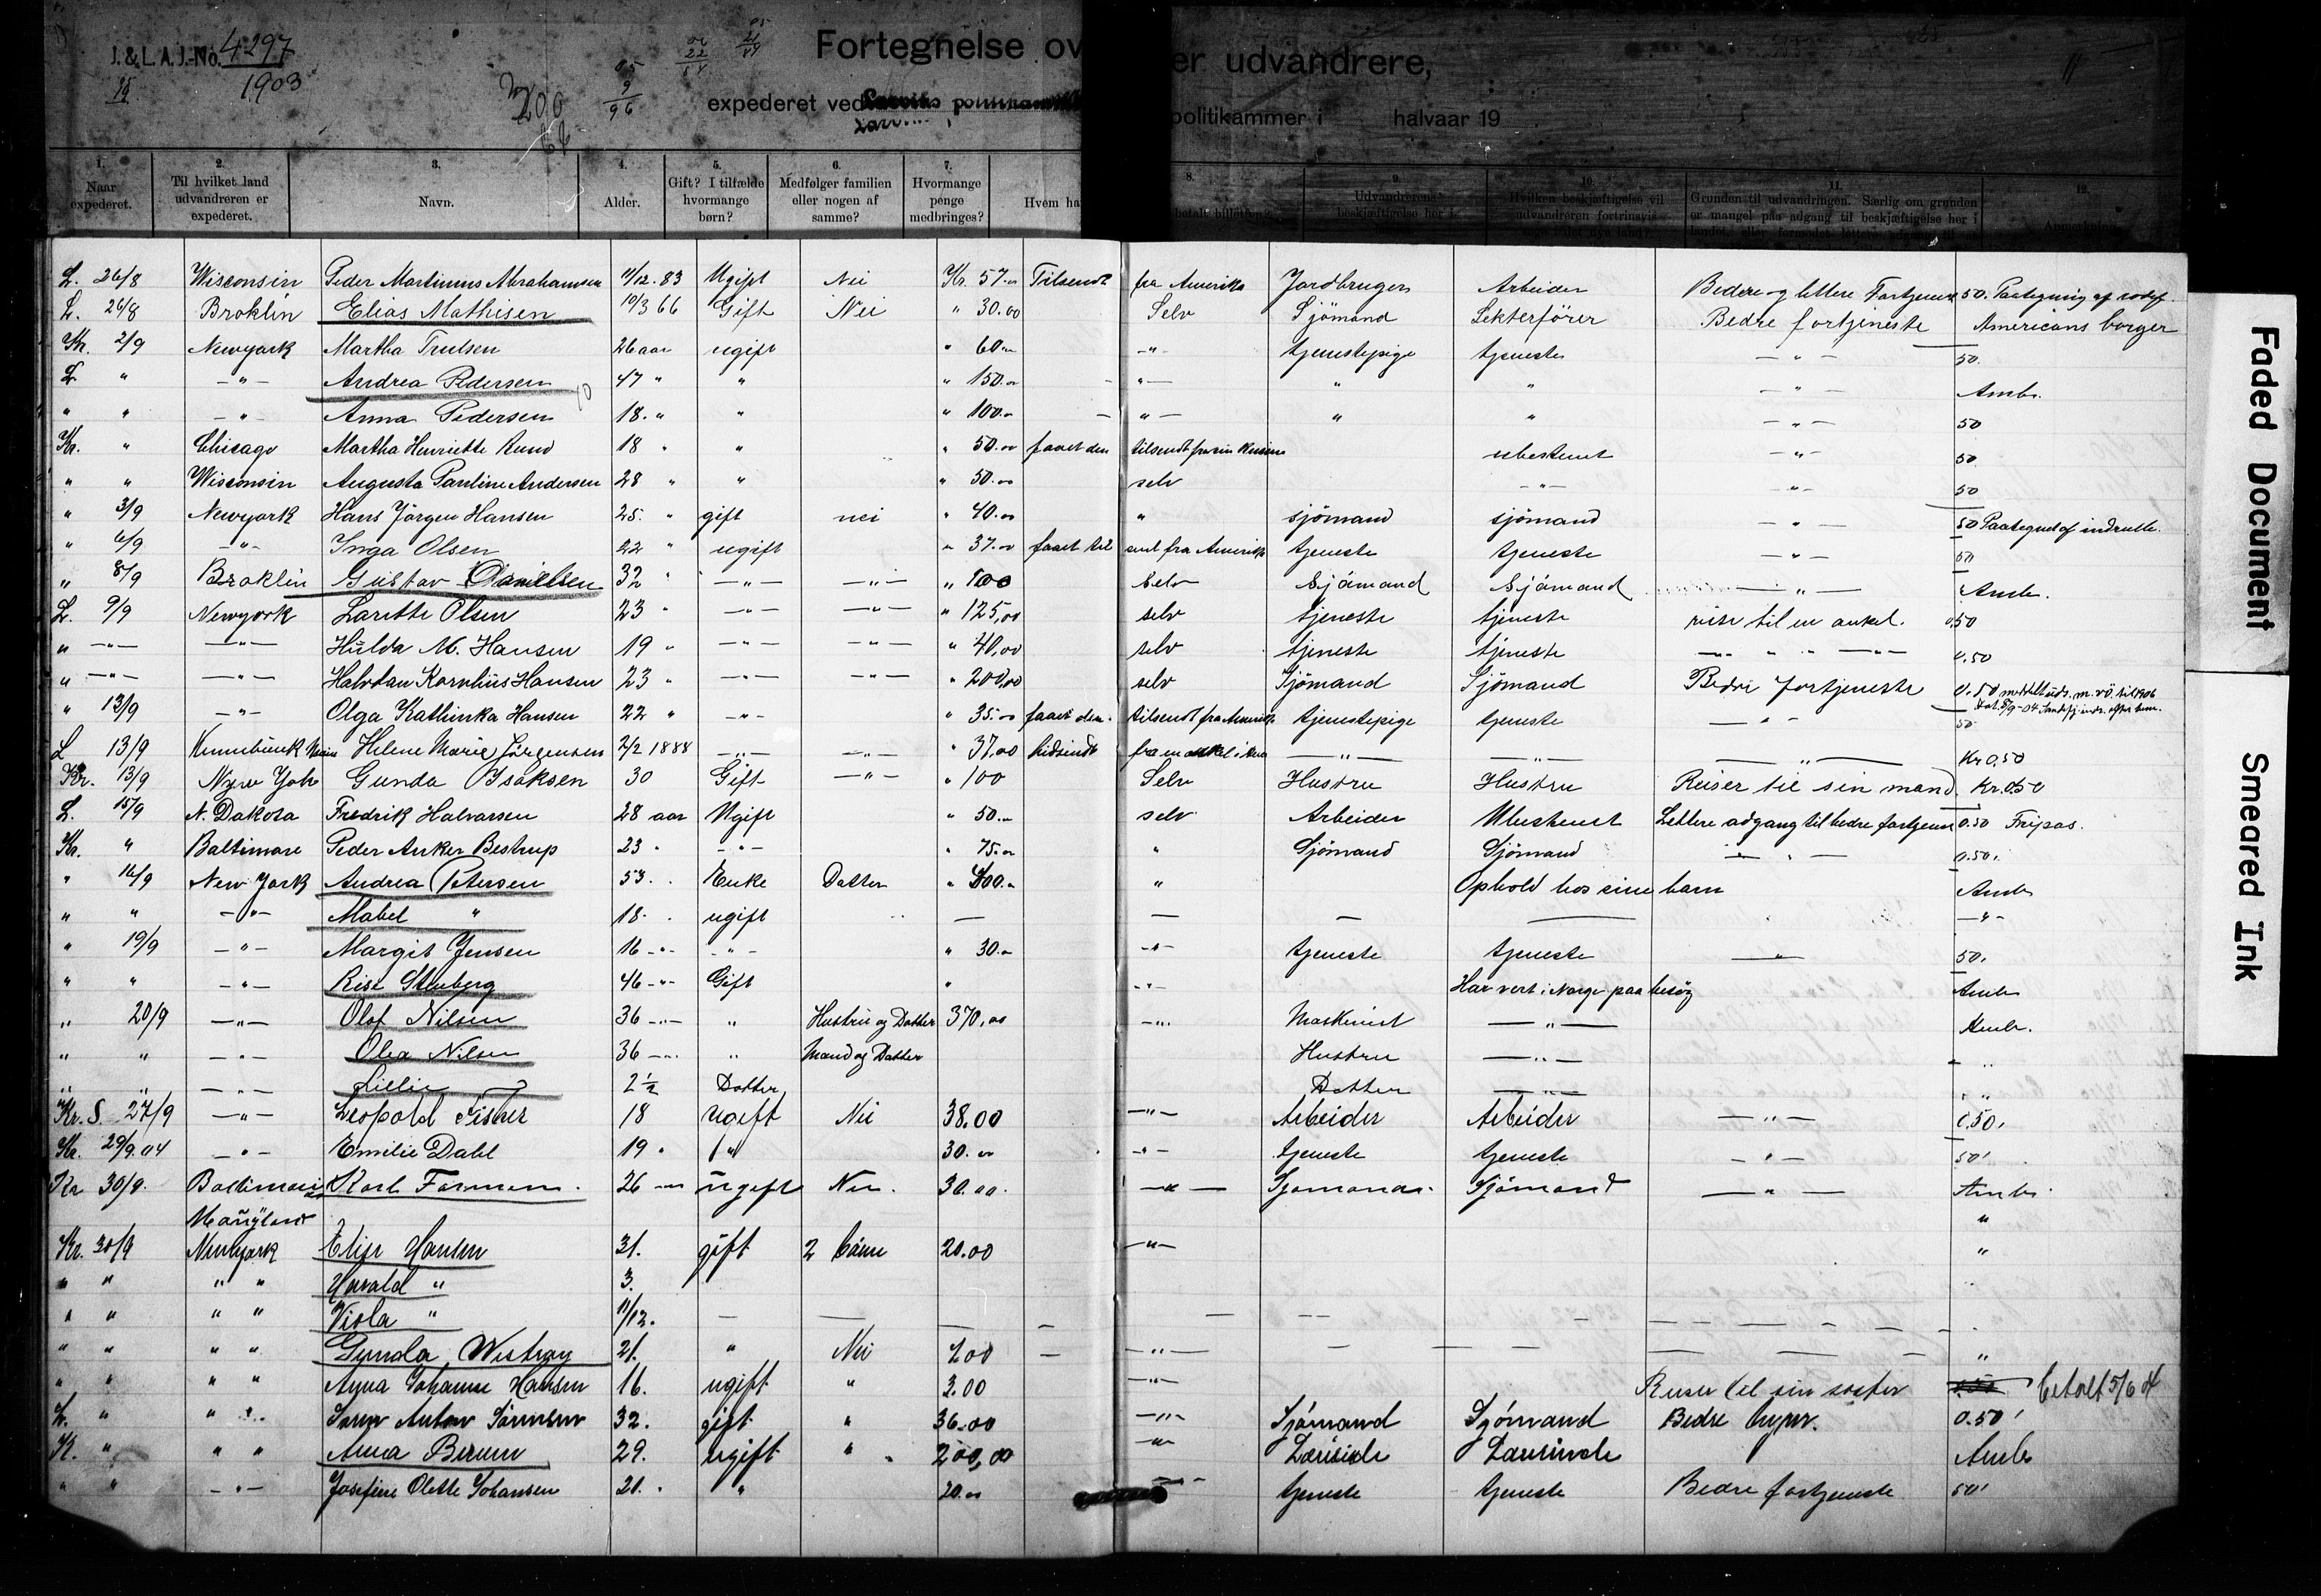 J. & L. A. J.-No. 4297
1903
Fortegnelse over udvandrere,
expederet ved politikammer i halvaar 19
1. Naar expederet.
2. Til hvilket land udvandreren er expederet.
3. Navn.
4. Alder.
5. Gift? I tilfælde hvormange børn?
6. Medfølger familien eller nogen af samme?
7. Hvormange penge medbringes?
8. Hvem ha betalt billetten?
9. Udvandrerens beskjæftigelse her i
10. Hvilken beskjæftigelse vil udvandreren fortrinsvis
11. Grunden til udvandringen. Særlig om grunden er mangel paa adgang til beskjæftigelse her i
12.
L. 26/8 Wisconsin Peder Martinius Abrahamsen 11/12.83 Ugift Nei Kr. 57.00 Tilsendt fra Amerika Jordbruger Arbeider Bedre og lettere Fortjeneste 50. Paategning af
L. 26/8 Broklin Elias Mathisen 10/3 66 Gift Nei " 30.00 Selv Sjömand Lekterförer Bedre fortjeneste Americans borger
Kr. 2/9 Newyork Martha Trulsen 26 aar ugift " 60.00 -"- tjenestepige tjeneste -"- 50.
L " -"- Andrea Pedersen 47 " " " 150.00 "- " " -"- Amb.
" " -"- Anna Pedersen 18. " " " 100.00 "- " " -"- 50
Kr. " Chicago Martha Henriette Rund 18 " " " 50.00 faaet den tilsendt fra sin kusine ubestemt -"- 50
" " Wisconsin Augusta Pauline Andersen 28 " " " 50.00 selv -"- -"- 50
" 3/9 Newyork Hans Jörgen Hansen 25. " gift nei " 40.00 " sjömand sjömand -"- 50 Paategnet af indrulle.
" 6/9 -"- Inga Olsen 22 " ugift " 37.00 faaet til sent fra Amerika tjeneste tjeneste -"- 50
" 8/9 Broklin Gustav Danielsen 32 " -"- -"- " 100 Selv Sjömand Sjömand -"- Amb.
L. 9/9 Newyork Laritte Olsen 23 " -"- -"- " 125,00 selv tjeneste tjeneste reise til en onkel. 0.50
" -"- -"- Hulda M. Hansen 19 " -"- -"- " 40,00 selv tjeneste tjeneste -"- " " -"- 0.50
" -"- -"- Halvdan Kornelius Hansen 23 " -"- -"- " 200,00 selv Sjömand Sjömand Bedre fortjeneste 0.50
" 13/9 -"- Olga Kathinka Hansen 22 " -"- " 35.00 faaet den tilsendt fra Amerika tjenestepige tjeneste -"- 50
L 13/9 Kennebunk Main Helene Marie Jörgensen 2/2 1888 -"- -"- " 37,00 hidsendt fra en onkel i Am. -"- -"- -"- Kr 0,50
Kr. 13/9 New York Gunda Isaksen 30 Gift -"- " 100 Selv Hustru Hustru Reiser til sin mand. Kr. 0.50
L. 15/9 N. Dakota Fredrik Halvorsen 28 aar Ugift " 50.00 selv Arbeider Ubestemt Lettere adgang til bedre fortjeneste 0.50 Fripas.
Kr. " Baltimore Peder Anker Bestrup 23 " -"- " 75.00 " Sjömand Sjömand -"- 0.50.
" 16/9 New York Andrea Petersen 53. " Enke Datter " 400.00 " Ophold hos sine barn Amb
" " -"- Mabel " 18. " ugift — — — — -"-
" 19/9 -"- Margit Jensen 16 -"- -"- " 30.00 -"- tjeneste tjeneste -"- 50.
" " -"- Stenberg 46 -"- Gift " -"- Har vert i Norge paa besög Amb
" 20/9 -"- Olaf Nilsen 36 -"- " Hustru og Datter 370,00 -"- Maskinist -"- Amb.
" " -"- Olea Nilsen 36 -"- " Mand og Datter Hustru -"- "
" " -"- Lillie 2 1/2 Datter Datter -"- "
Kr. S. 27/9 -"- Leopold Fisher 18 ugift Nei 38.00 -"- Arbeider Arbeider -"- 0.50.
Kr. 29/9.04 -"- Emilie Dahl 19 " " 30.00 -"- tjeneste tjeneste -"- 50
Kr 30/9. Baltimore Karl 26 ugift Nei. 30.00. -"- Sjömand. Sjömand -"- Amb.
Maryland "
Kr. 30/9 Newyork Elise Hansen 31. gift 2 börn 20.00 -"- "
" " " " Harald " 3.
" " " " Viola " 11/12. — — — —
" " " " Gunda 21. " Nei 200 — -"- — — — "
" " " " Anna Johanne Hansen 16. ugift " 3.00 -"- Reiser til sin søster 0.50 betalt 5/6 04
L. " " " Anton 32. gift " 36.00 -"- Sjömand Sjömand Bedre 0.50
K. " " " Anna 29. ugift " 200,00 -"- Amb
" " -"- Josefine Olette Johansen 21. " " 20.00 -"- tjeneste tjeneste Bedre fortjeneste 50
Faded Document
Smeared Ink